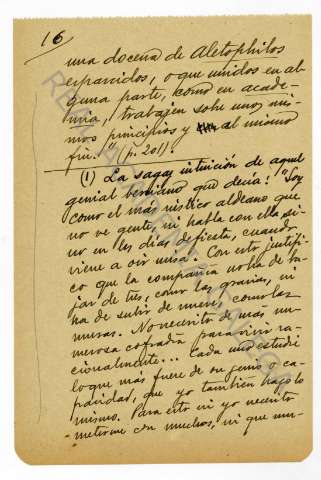 16
una docena de Aletophilos
esparcidos, o que unidos en al-
guna parte, como en acade-
mia, trabajen sobre unos mis-
mos principios y al mismo
fin." (p. 201).
(1) La sagaz intuición de aquel
genial berciano que decía: "Soy
como el más rústico aldeano que
no ve gente, ni habla con ella si-
no en los días de fiesta, cuando
viene a oir misa. Con esto justifi-
co que la compañía no ha de ba-
jar de tres, como las gracias, ni
ha de subir de nueve, como las
musas. No necesito de más nu-
merosa cofradía para vivir ra-
cionalmente... Cada uno estudie
lo que más fuere de su genio o ca-
pacidad, que yo también hago lo
mismo. Para esto ni yo necesito
meterme con muchos, ni que mu-